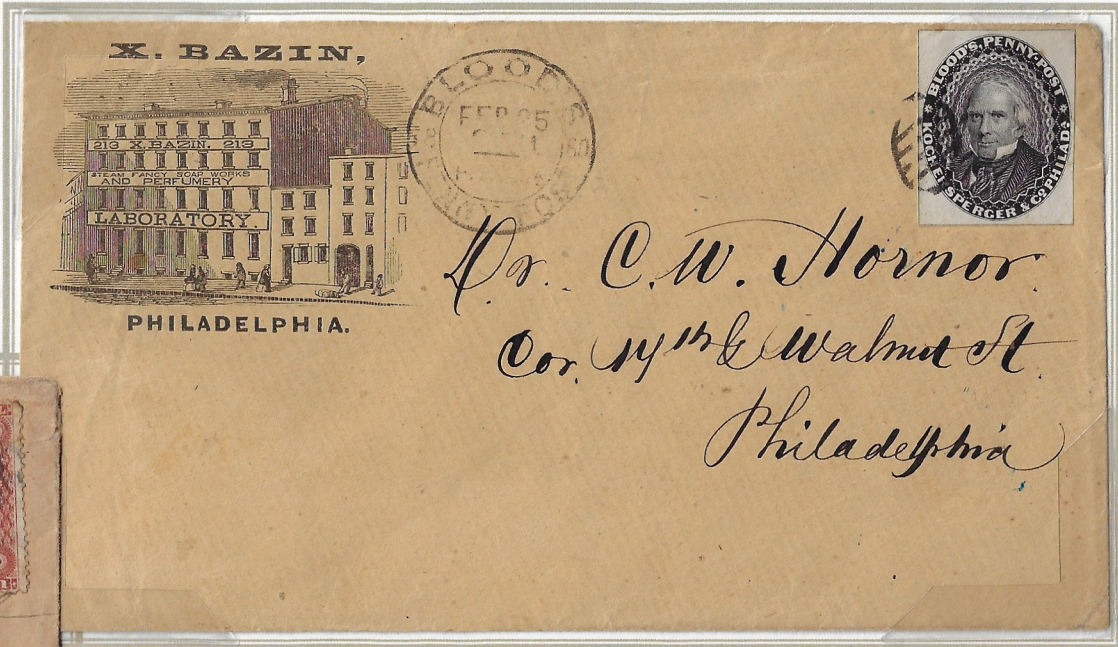 X. BAZIN,
213 X.BAZIN. 213
STEAM FANCY SOAP WORKS
AND PERFUMERY
LABORATORY.
PHILADELPHIA.
BLOOD'S
FEB 25
BLOOD'S PENNY-POST
KOCHERSPERGER & CO PHILADA
Dr. C. W. Hornor.
Cor. 14th & Walnut St.
Philadelphia